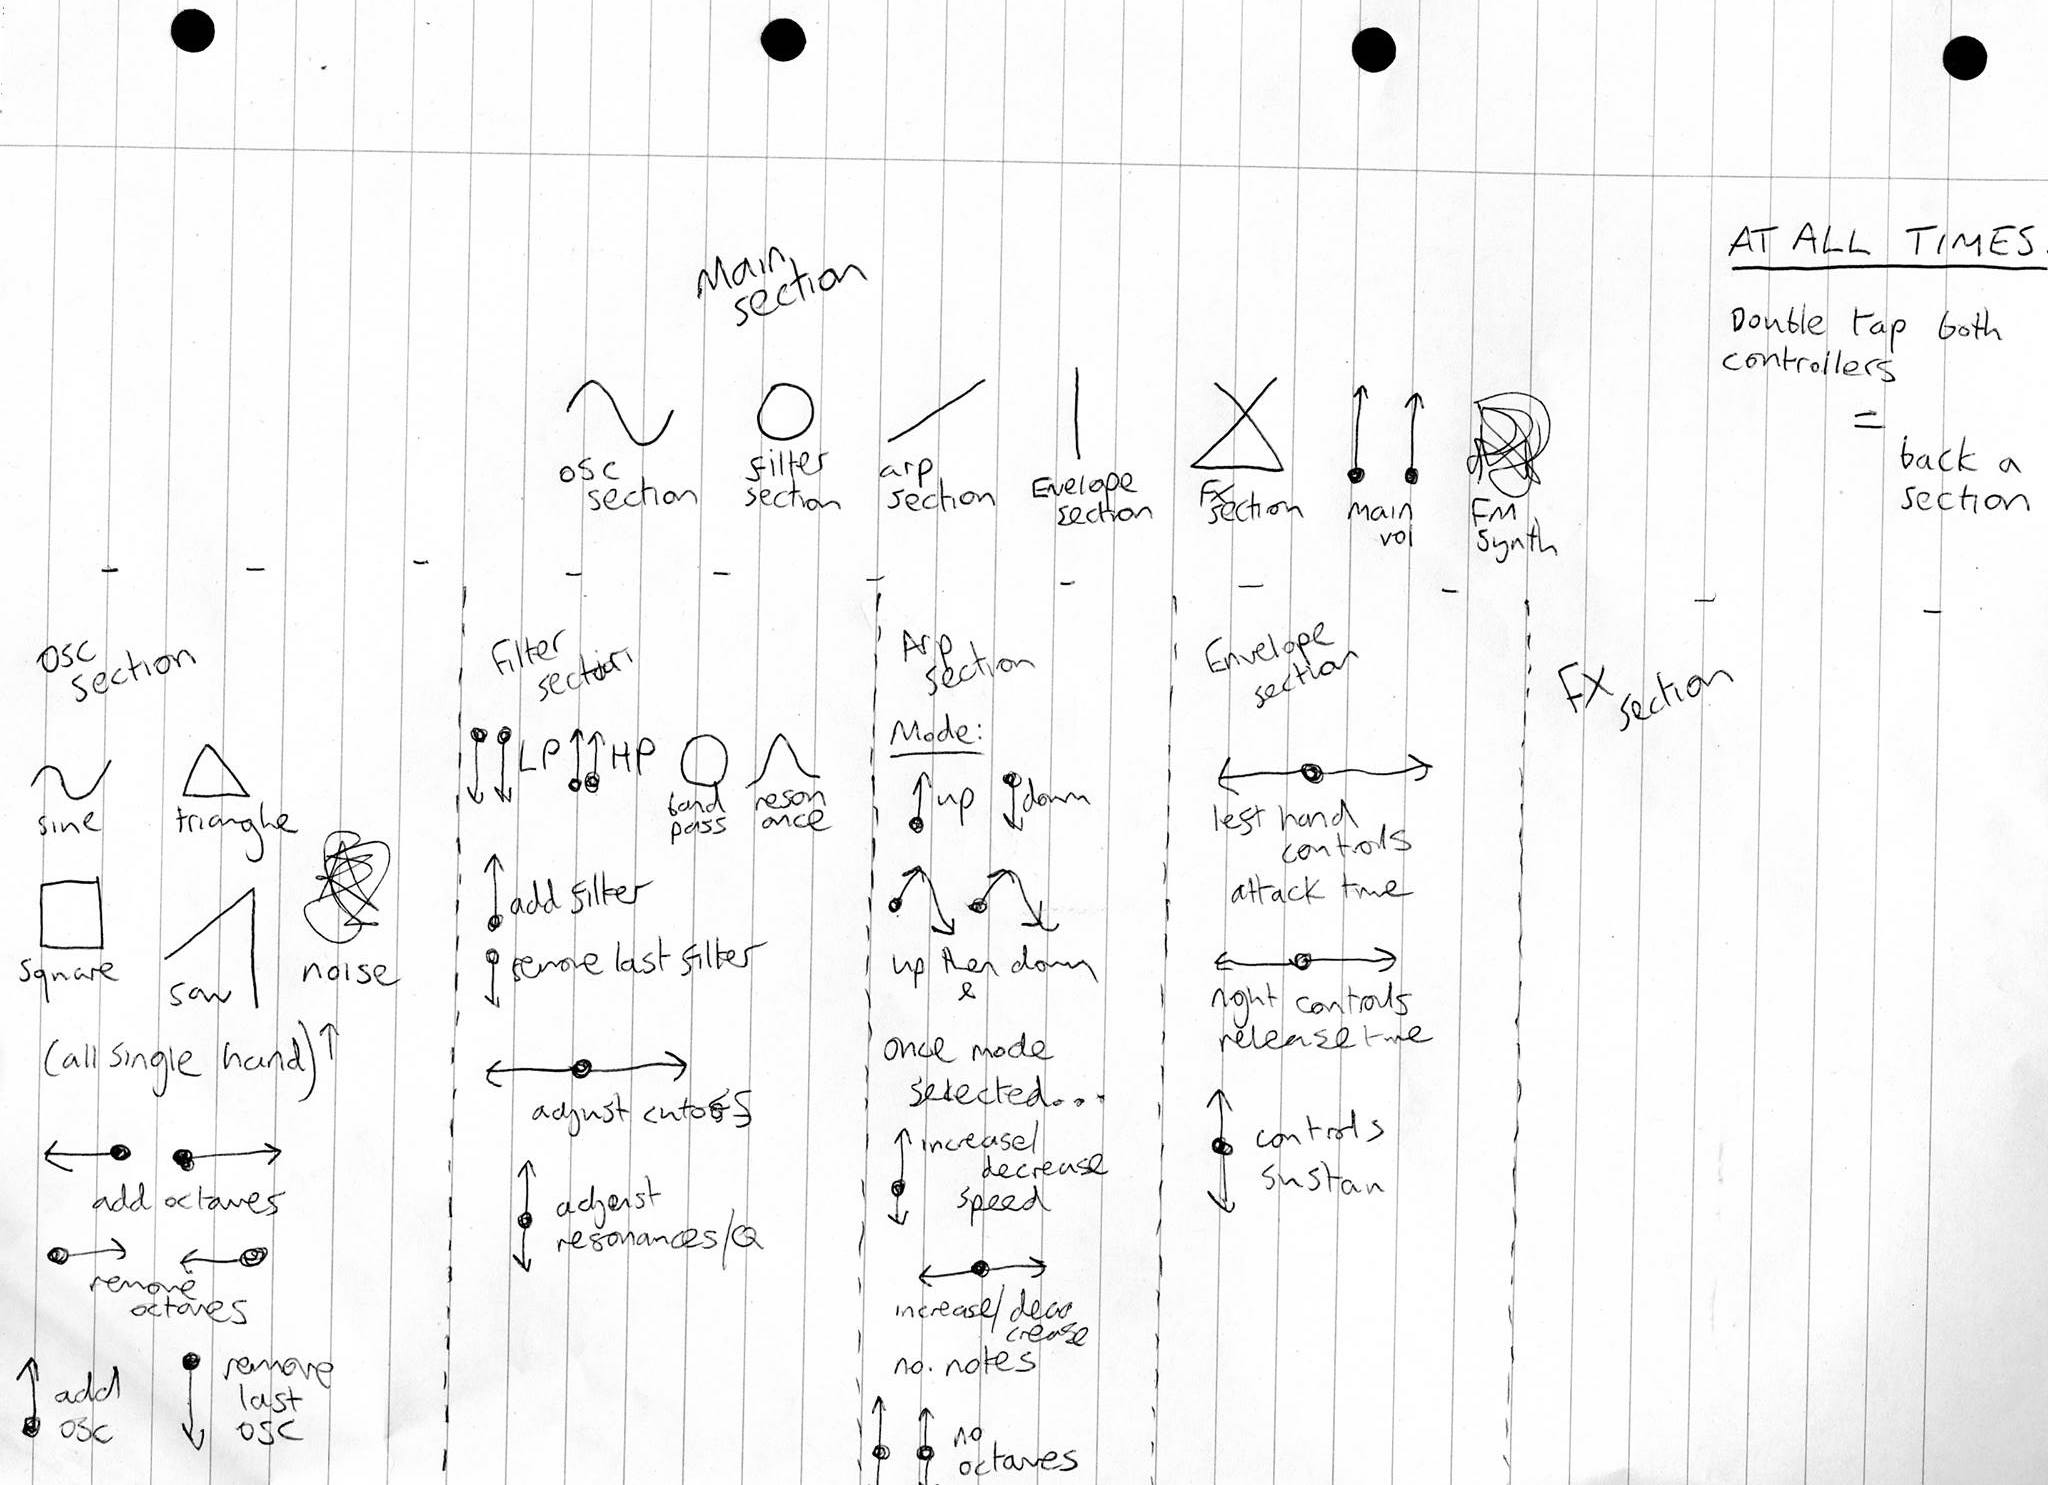 Main
section
AT ALL TIMES.
Double tap both
controllers
=
back a
section
osc
section
filter
section
arp
section
Envelope
section
FX
section
main
vol
FM
Synth
osc
section
sine
triangle
square
saw
noise
(all single hand)
add octaves
remove
octaves
add
osc
remove
last
osc
Filter
section
LP
HP
band
pass
reson
ance
add filter
remove last filter
adjust cutoff
adjust
resonances/Q
Arp
section
Mode:
up
down
up then down
&
once mode
selected...
increase/
decrease
speed
increase/dec
crease
no. notes
no
octaves
Envelope
section
left hand
controls
attack time
right controls
release time
controls
sustan
FX
section